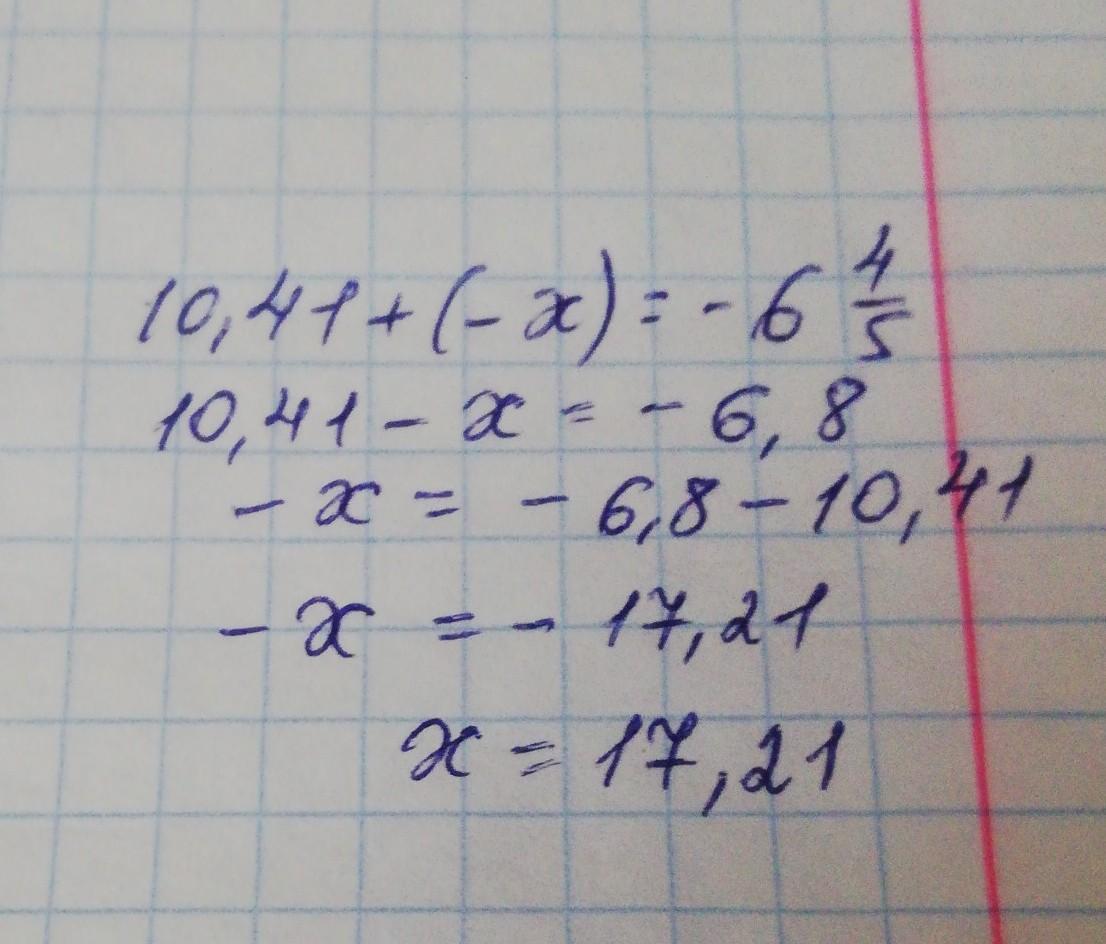 10,41+(-x)=-6 4/5
10,41-x=-6,8
-x=-6,8-10,41
-x=-17,21
x=17,21